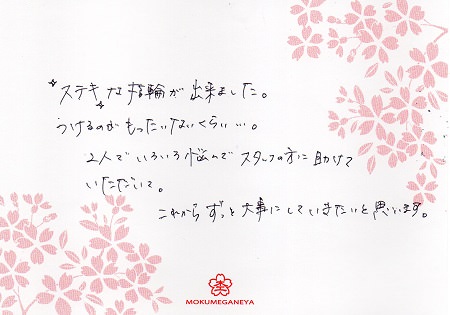 ステキな指輪が出来ました。
うけるのがもったいないくらい…。
2人でいろいろ悩んでスタッフの方に助けて
いただいて。
これからずっと大事にしていきたいと思います。
MOKUMEGANEYA